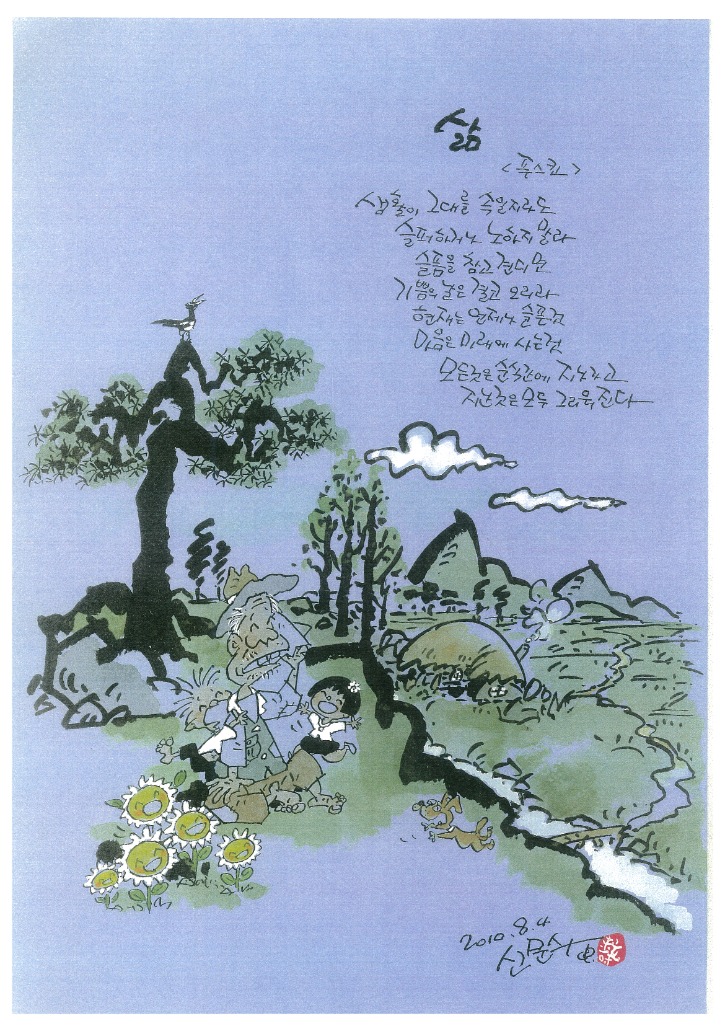 삶
<푸스킨>
생활이 그대를 속일지라도
슬퍼하거나 노하지 말라
슬픔을 참고 견디면
기쁨의 날은 결코 오리라
현재는 언제나 슬픈것
마음은 미래에 사는것
모든것은 순식간에 지나가고
지난것은 모두 그리워진다
2010.8.4
신문수